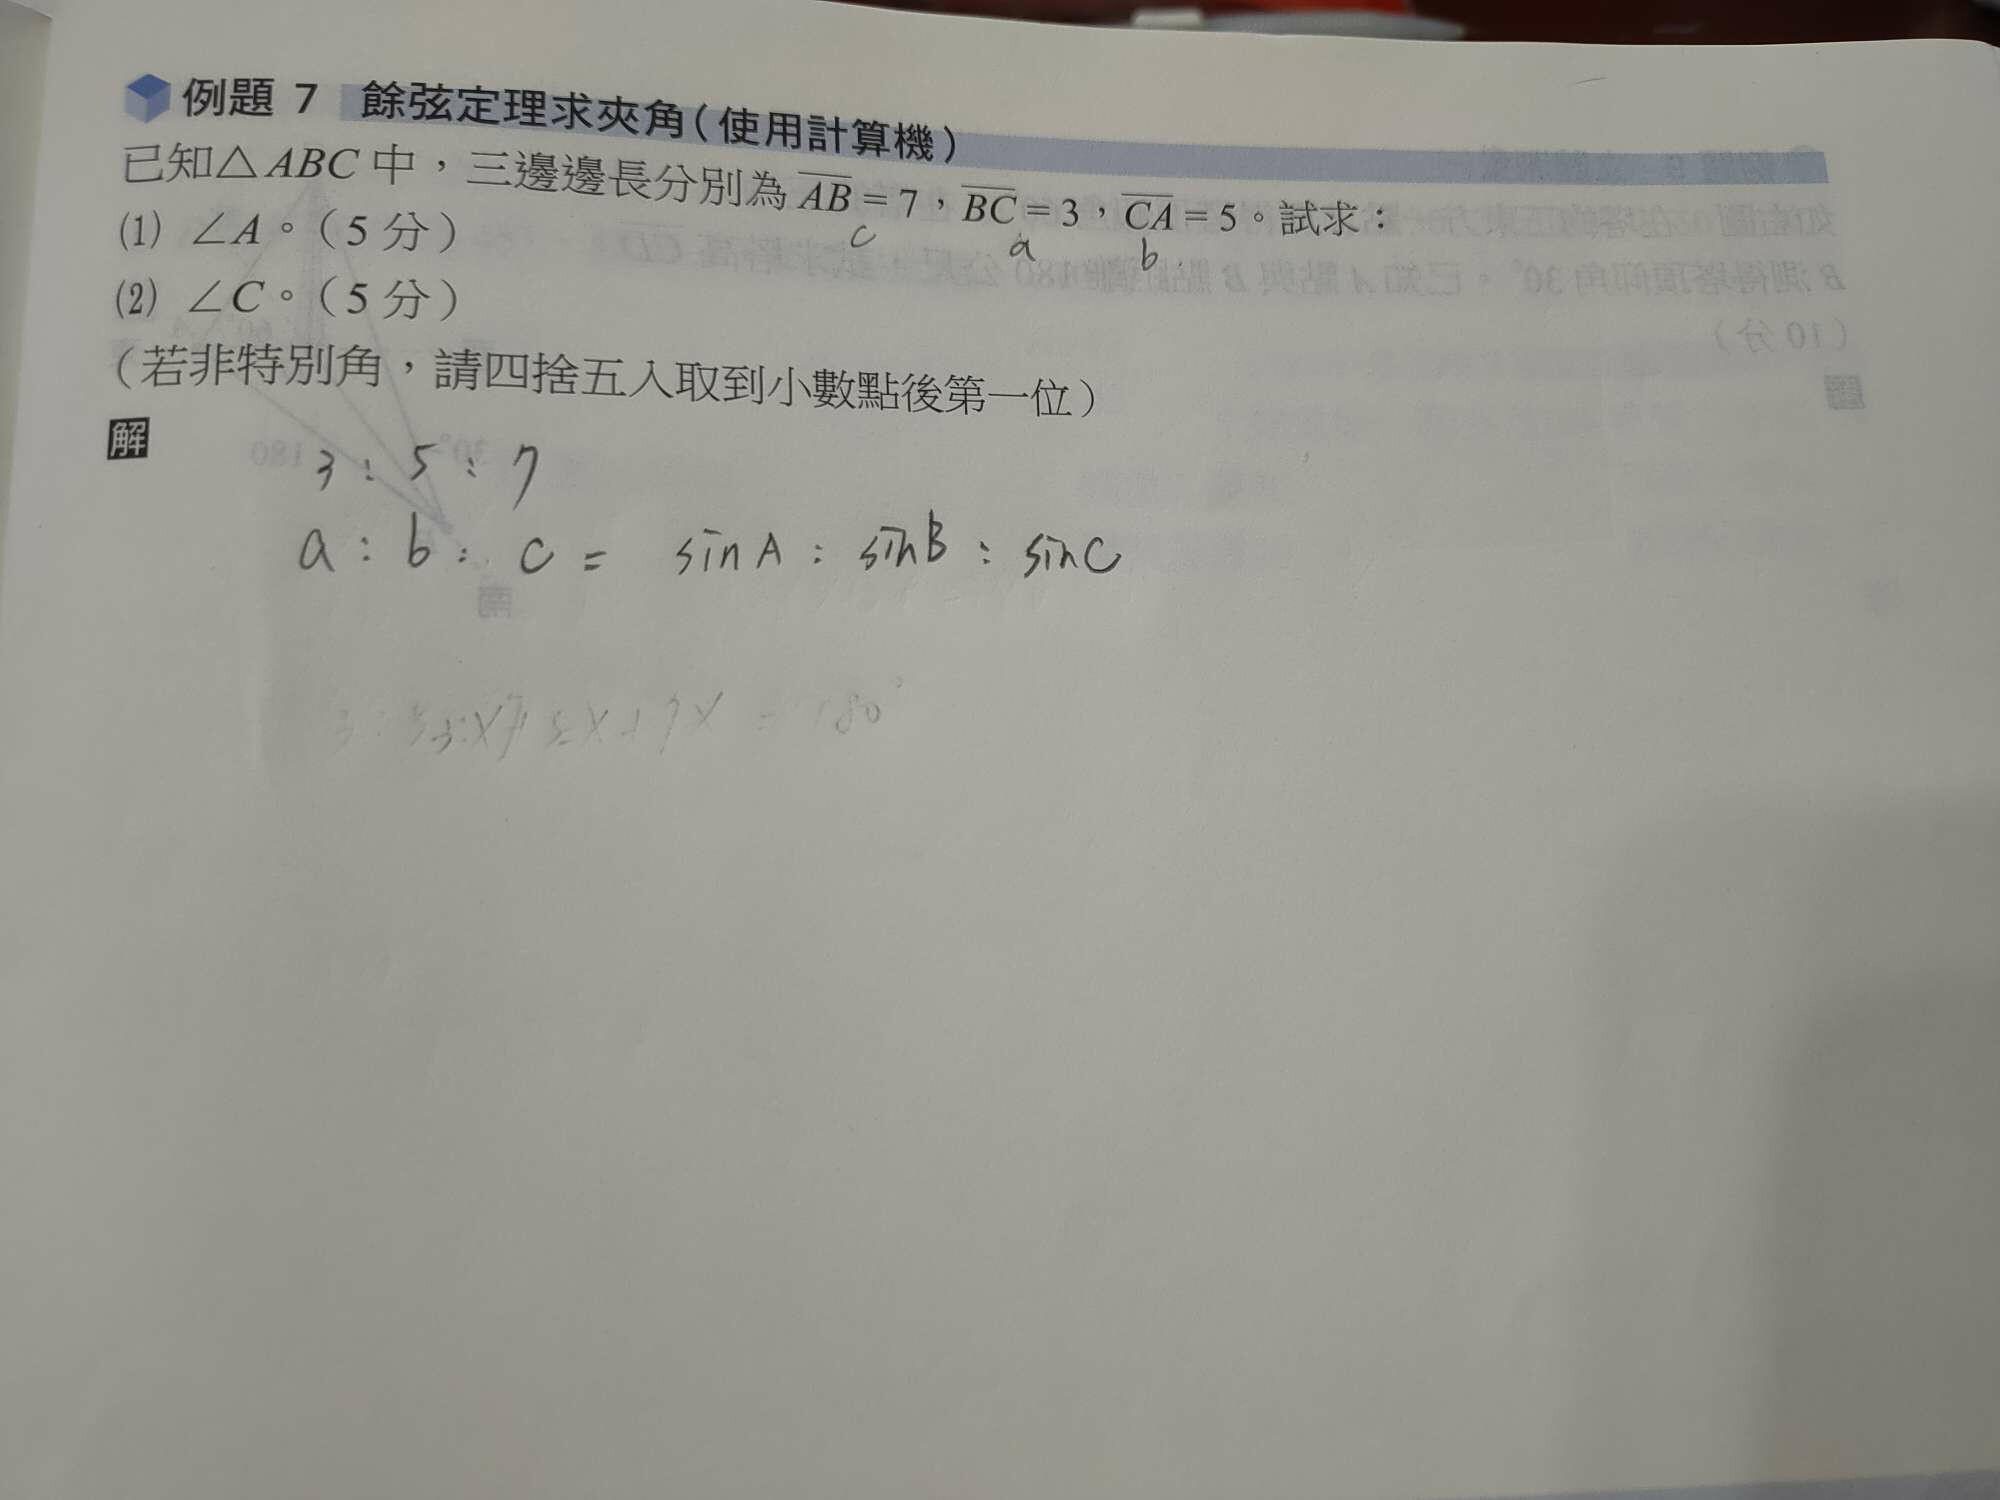 例題 7 餘弦定理求夾角(使用計算機)
已知△ABC 中，三邊邊長分別為 AB = 7，BC = 3，CA = 5。試求：
c a b
(1) ∠A。(5 分)
(2) ∠C。(5 分)
(若非特別角，請四捨五入取到小數點後第一位)
解
3 : 5 : 7
a : b : c = sinA : sinB : sinC